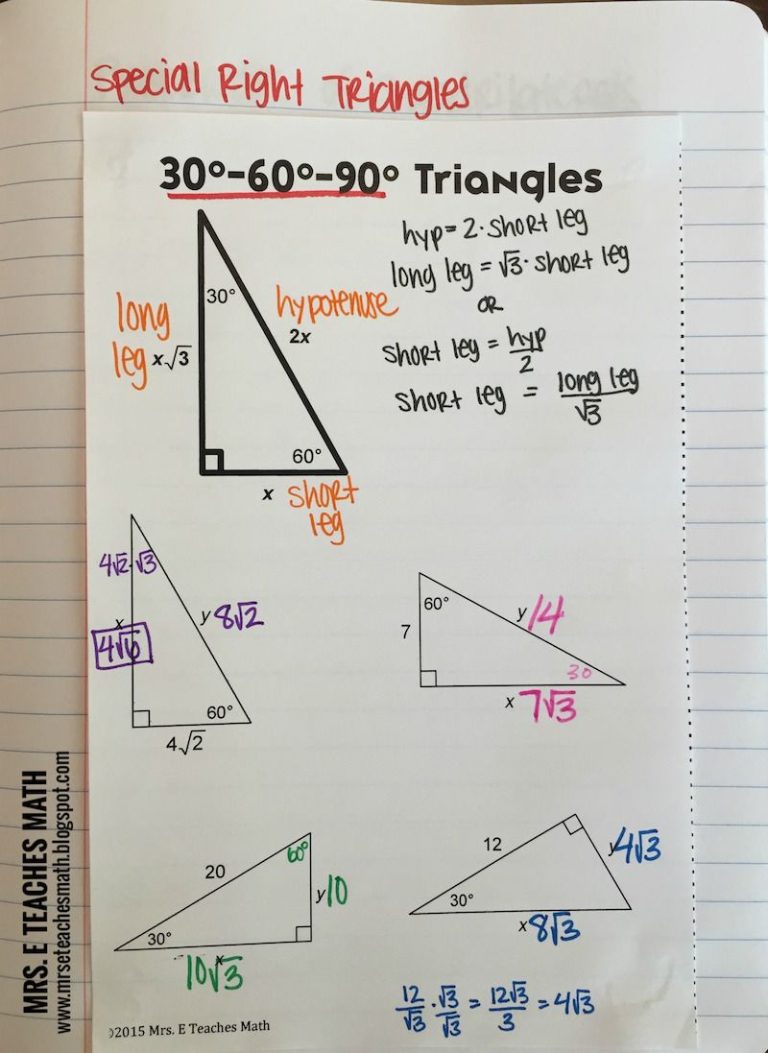 Special Right Triangles
30°-60°-90° Triangles
hyp = 2·short leg
long leg = √3·short leg
OR
short leg = hyp/2
short leg = long leg/√3
30°
long
leg x√3
hypotenuse
2x
60°
x short
leg
4√2·√3
x
4√6
y 8√2
60°
4√2
60°
7
y 14
30
x 7√3
20
60°
y 10
30°
x
10√3
12
y 4√3
30°
x 8√3
12/√3 · √3/√3 = 12√3/3 = 4√3
©2015 Mrs. E Teaches Math
MRS. E TEACHES MATH
www.mrseteachesmath.blogspot.com